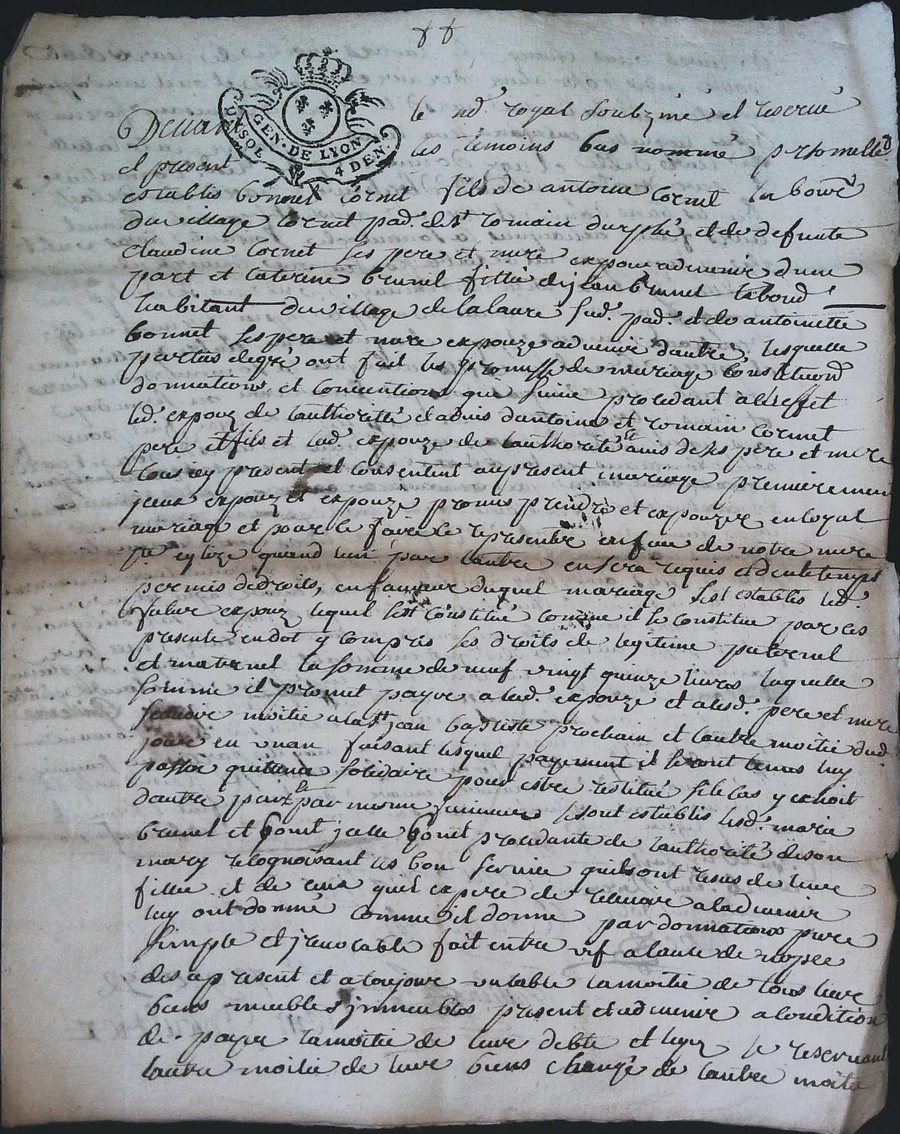 GEN. DE LYON
4 DEN.
Devan le no.re royal soubz.né et reservé
et present les temoins bas nommé personelle
establis bonnet Cornet fils de antoine Cornet laboure
du village Cornet pad. de st romain durphé et de defunte
Claudine Cornet ses pere et mere expoux advenir dune
part et caterine brunel fillie de jean brunel labour
habitant du village de lalaure sud. pad. et de antoinette
bonnet ses pere et mere expouze advenir dautre, lesquelle
parties de gré ont fait les promisse de mariage constitutions
donnations et conventions qui suive procedant a leffet
led. expoux de lauthorité et advis dantoine et romain Cornet
pere et fils et lad. expouze de lauthorité avis de ses pere et mere
tous icy present et consentent au present mariage premierement
jceux expoux et expouze promis prendre et expouzer en loyal
mariage et pour le faire se represente en fasse de notre mere
ste eglize quand lun par lautre en sera requis et dente temps
permis de droits, en faveur duquel mariage sest establis led.
futur expoux lequel sest constitué comme il se constitue par ces
presente en dot y compris ses droits de legitime paternel
et maternel la somme de neuf vingt quinze livres laquelle
somme il promet payer a lad. expouze et a sesd. pere et mere
scavoir moitie a la st jean baptiste prochain et lautre moitié dud.
jour en un an faisant lesquel payement il seront tenus luy
passer quittence solidaire pour estre restitué si le cas y echoit
dautre part par mesme se sont establis lesd. marie
brunel et bonnet jcelle bonnet procedante de lauthorité de son
mary recognoisant les bon service quils ont resus de leure
fillie et de ceux quil expere de recevoir a ladvenir
luy ont donné comme il donne par donnations pure
simple et jrevocable fait entre vif a cause de nopce
des a present et a toujour valable la moitié de tous leure
biens meubles jmmeubles present et advenir a condition
de payer la moitié de leure debte et legs se reservant
lautre moitié de leure biens chargé de lautre moitié